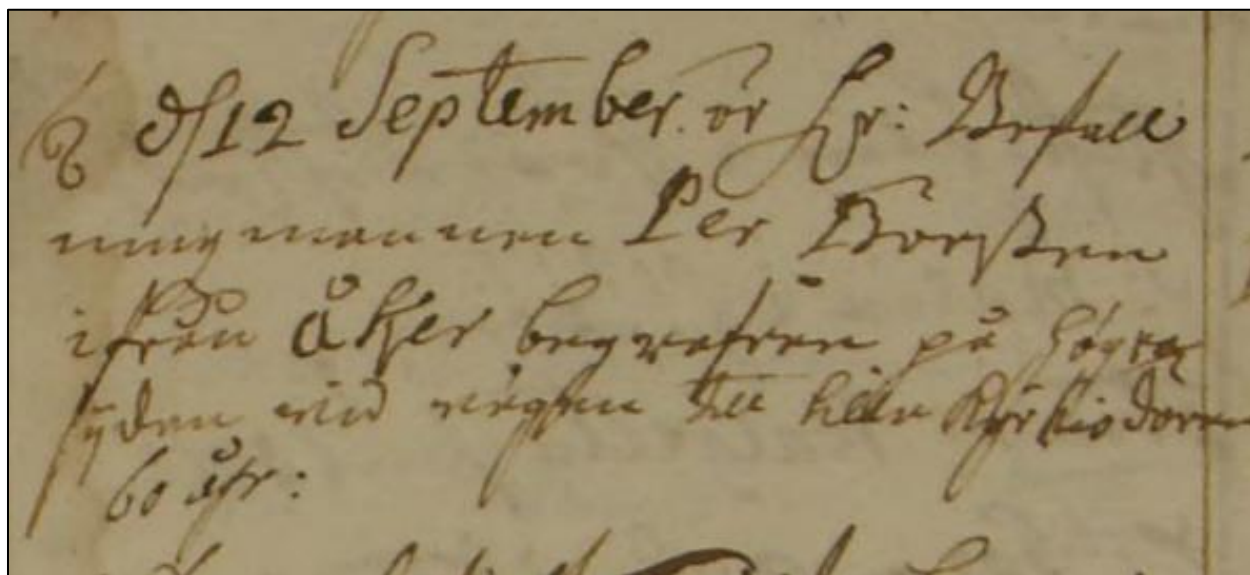 d/12 September. är Hr: Befall
ningzmannen Per Torsten
ifrån åker begrafven på högra
sÿden vid vägen till lilla Kÿrkiodören
60 åhr: